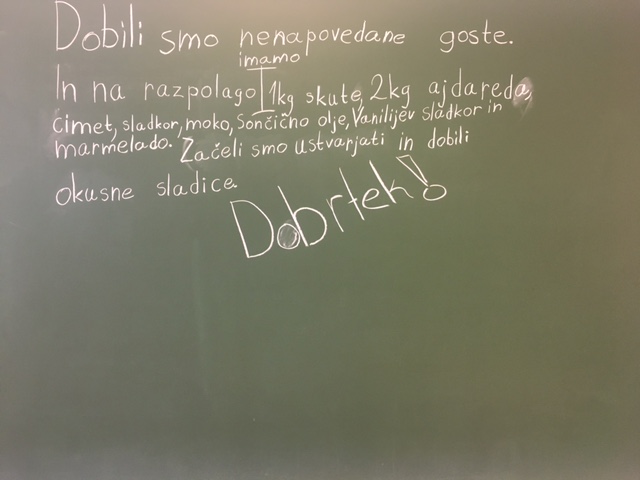 Dobili smo nenapovedane goste.
imamo
In na razpolago 1kg skute, 2kg ajdareda,
cimet, sladkor, moko, Sončično olje, Vanilijev sladkor in
marmelado. Začeli smo ustvarjati in dobili
okusne sladice.
Dobrtek!